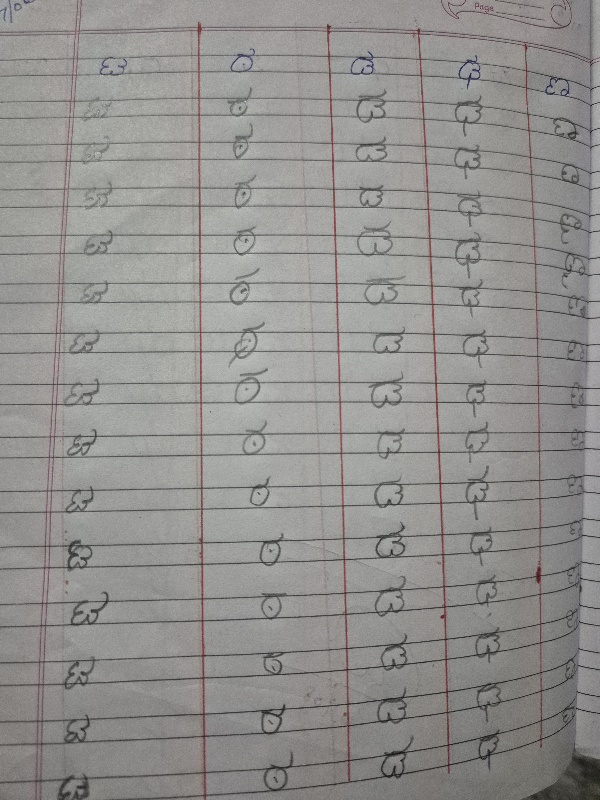 Page
ಟ ಠ ಡ ಢ ಣ
ಟ ಠ ಡ ಢ
ಟ ಠ ಡ ಢ
ಟ ಠ ಡ ಢ
ಟ ಠ ಡ ಢ
ಟ ಠ ಡ ಢ
ಟ ಠ ಡ ಢ
ಟ ಠ ಡ ಢ
ಟ ಠ ಡ ಢ
ಟ ಠ ಡ ಢ
ಟ ಠ ಡ ಢ
ಟ ಠ ಡ ಢ
ಟ ಠ ಡ ಢ
ಟ ಠ ಡ ಢ
ಟ ಠ ಡ ಢ